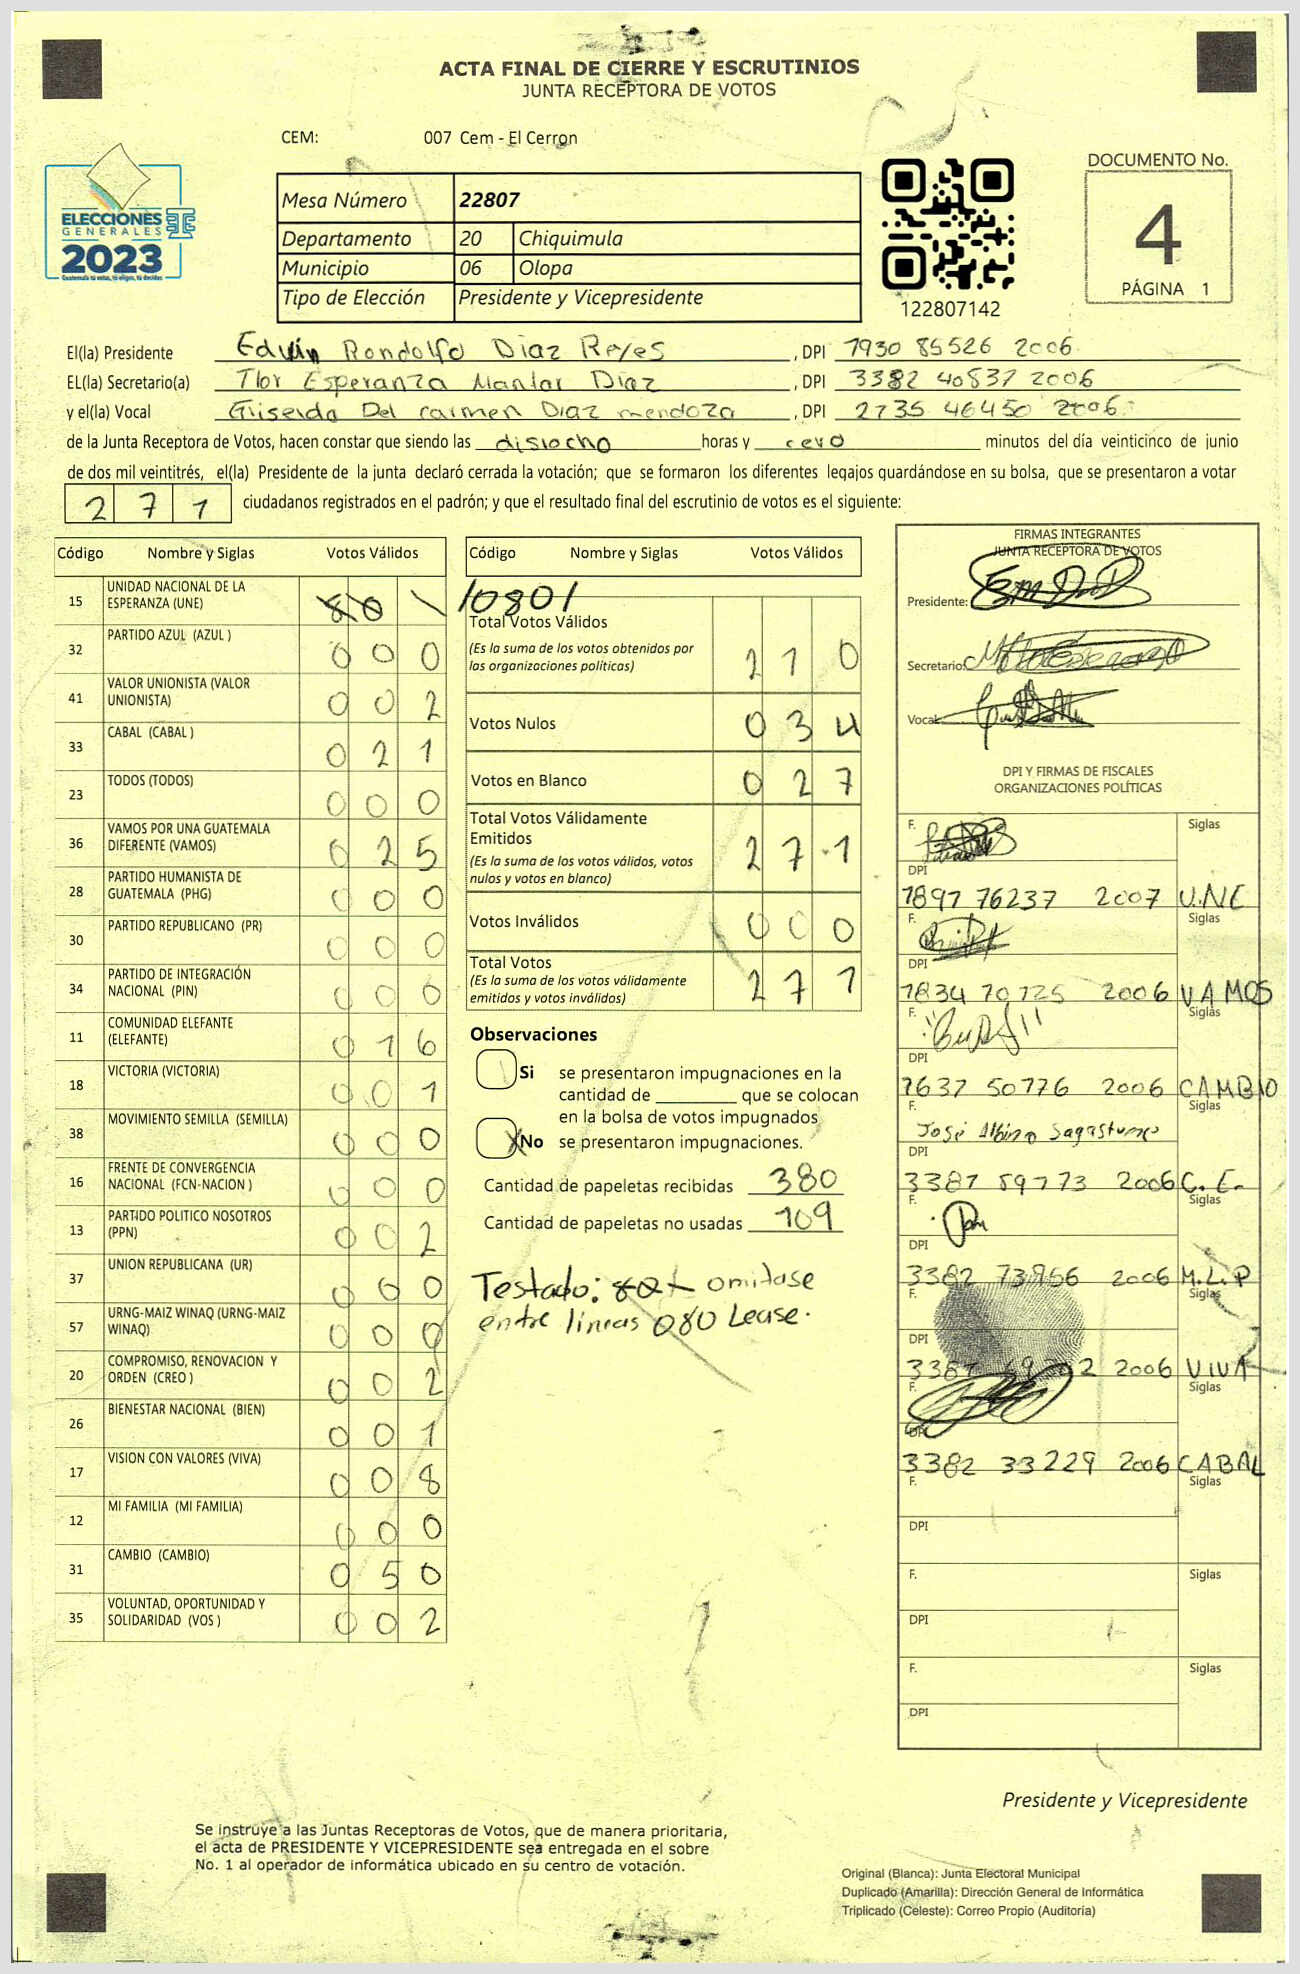 ACTA FINAL DE CIERRE Y ESCRUTINIOS
JUNTA RECEPTORA DE VOTOS
CEM: 007 Cem - El Cerron
ELECCIONES
GENERALES
2023
Guatemala tu votas, tú eliges, tú decides
Mesa Número 22807
Departamento 20 Chiquimula
Municipio 06 Olopa
Tipo de Elección Presidente y Vicepresidente
122807142
DOCUMENTO No.
4
PÁGINA 1
El(la) Presidente Edvin Rondolfo Diaz Reyes , DPI 1930 85526 2006
EL(la) Secretario(a) Flor Esperanza Diaz , DPI 3382 40837 2006
y el(la) Vocal Griselda Del carmen Diaz mendoza , DPI 2735 46450 2006
de la Junta Receptora de Votos, hacen constar que siendo las disiocho horas y cero minutos del día veinticinco de junio
de dos mil veintitrés, el(la) Presidente de la junta declaró cerrada la votación; que se formaron los diferentes legajos guardándose en su bolsa, que se presentaron a votar
271 ciudadanos registrados en el padrón; y que el resultado final del escrutinio de votos es el siguiente:
Código Nombre y Siglas Votos Válidos
15 UNIDAD NACIONAL DE LA ESPERANZA (UNE)
32 PARTIDO AZUL (AZUL ) 000
41 VALOR UNIONISTA (VALOR UNIONISTA) 002
33 CABAL (CABAL ) 021
23 TODOS (TODOS) 000
36 VAMOS POR UNA GUATEMALA DIFERENTE (VAMOS) 025
28 PARTIDO HUMANISTA DE GUATEMALA (PHG) 000
30 PARTIDO REPUBLICANO (PR) 000
34 PARTIDO DE INTEGRACIÓN NACIONAL (PIN) 000
11 COMUNIDAD ELEFANTE (ELEFANTE) 016
18 VICTORIA (VICTORIA) 001
38 MOVIMIENTO SEMILLA (SEMILLA) 000
16 FRENTE DE CONVERGENCIA NACIONAL (FCN-NACION ) 000
13 PARTIDO POLITICO NOSOTROS (PPN) 002
37 UNION REPUBLICANA (UR) 000
57 URNG-MAIZ WINAQ (URNG-MAIZ WINAQ) 000
20 COMPROMISO, RENOVACION Y ORDEN (CREO ) 002
26 BIENESTAR NACIONAL (BIEN) 001
17 VISION CON VALORES (VIVA) 008
12 MI FAMILIA (MI FAMILIA) 000
31 CAMBIO (CAMBIO) 050
35 VOLUNTAD, OPORTUNIDAD Y SOLIDARIDAD (VOS ) 002
Código Nombre y Siglas Votos Válidos
/080/
Total Votos Válidos 210
(Es la suma de los votos obtenidos por
las organizaciones políticas)
Votos Nulos 034
Votos en Blanco 027
Total Votos Válidamente
Emitidos 271
(Es la suma de los votos válidos, votos
nulos y votos en blanco)
Votos Inválidos 000
Total Votos 271
(Es la suma de los votos válidamente
emitidos y votos inválidos)
Observaciones
Si se presentaron impugnaciones en la
cantidad de ________ que se colocan
en la bolsa de votos impugnados
X No se presentaron impugnaciones.
Cantidad de papeletas recibidas 380
Cantidad de papeletas no usadas 109
Testado: omitase
entre lineas 080 Lease.
FIRMAS INTEGRANTES
JUNTA RECEPTORA DE VOTOS
Presidente:
Secretario:
Vocal
DPI Y FIRMAS DE FISCALES
ORGANIZACIONES POLÍTICAS
F. Siglas
DPI
1897 76237 2007 U.N.E
F. Siglas
DPI
1834 70725 2006 VAMOS
F. Siglas
DPI
1637 50776 2006 CAMBIO
F. Siglas
José Albino Sagastume
DPI
3387 59773 2006 C.E.
F. Siglas
DPI
3382 73956 2006 M.L.P
F. Siglas
DPI
3387 2006 VIVA
F. Siglas
DPI
3382 33229 2006 CABAL
F. Siglas
DPI
F. Siglas
DPI
F. Siglas
DPI
Presidente y Vicepresidente
Se instruye a las Juntas Receptoras de Votos, que de manera prioritaria,
el acta de PRESIDENTE Y VICEPRESIDENTE sea entregada en el sobre
No. 1 al operador de informática ubicado en su centro de votación.
Original (Blanca): Junta Electoral Municipal
Duplicado (Amarilla): Dirección General de Informática
Triplicado (Celeste): Correo Propio (Auditoría)